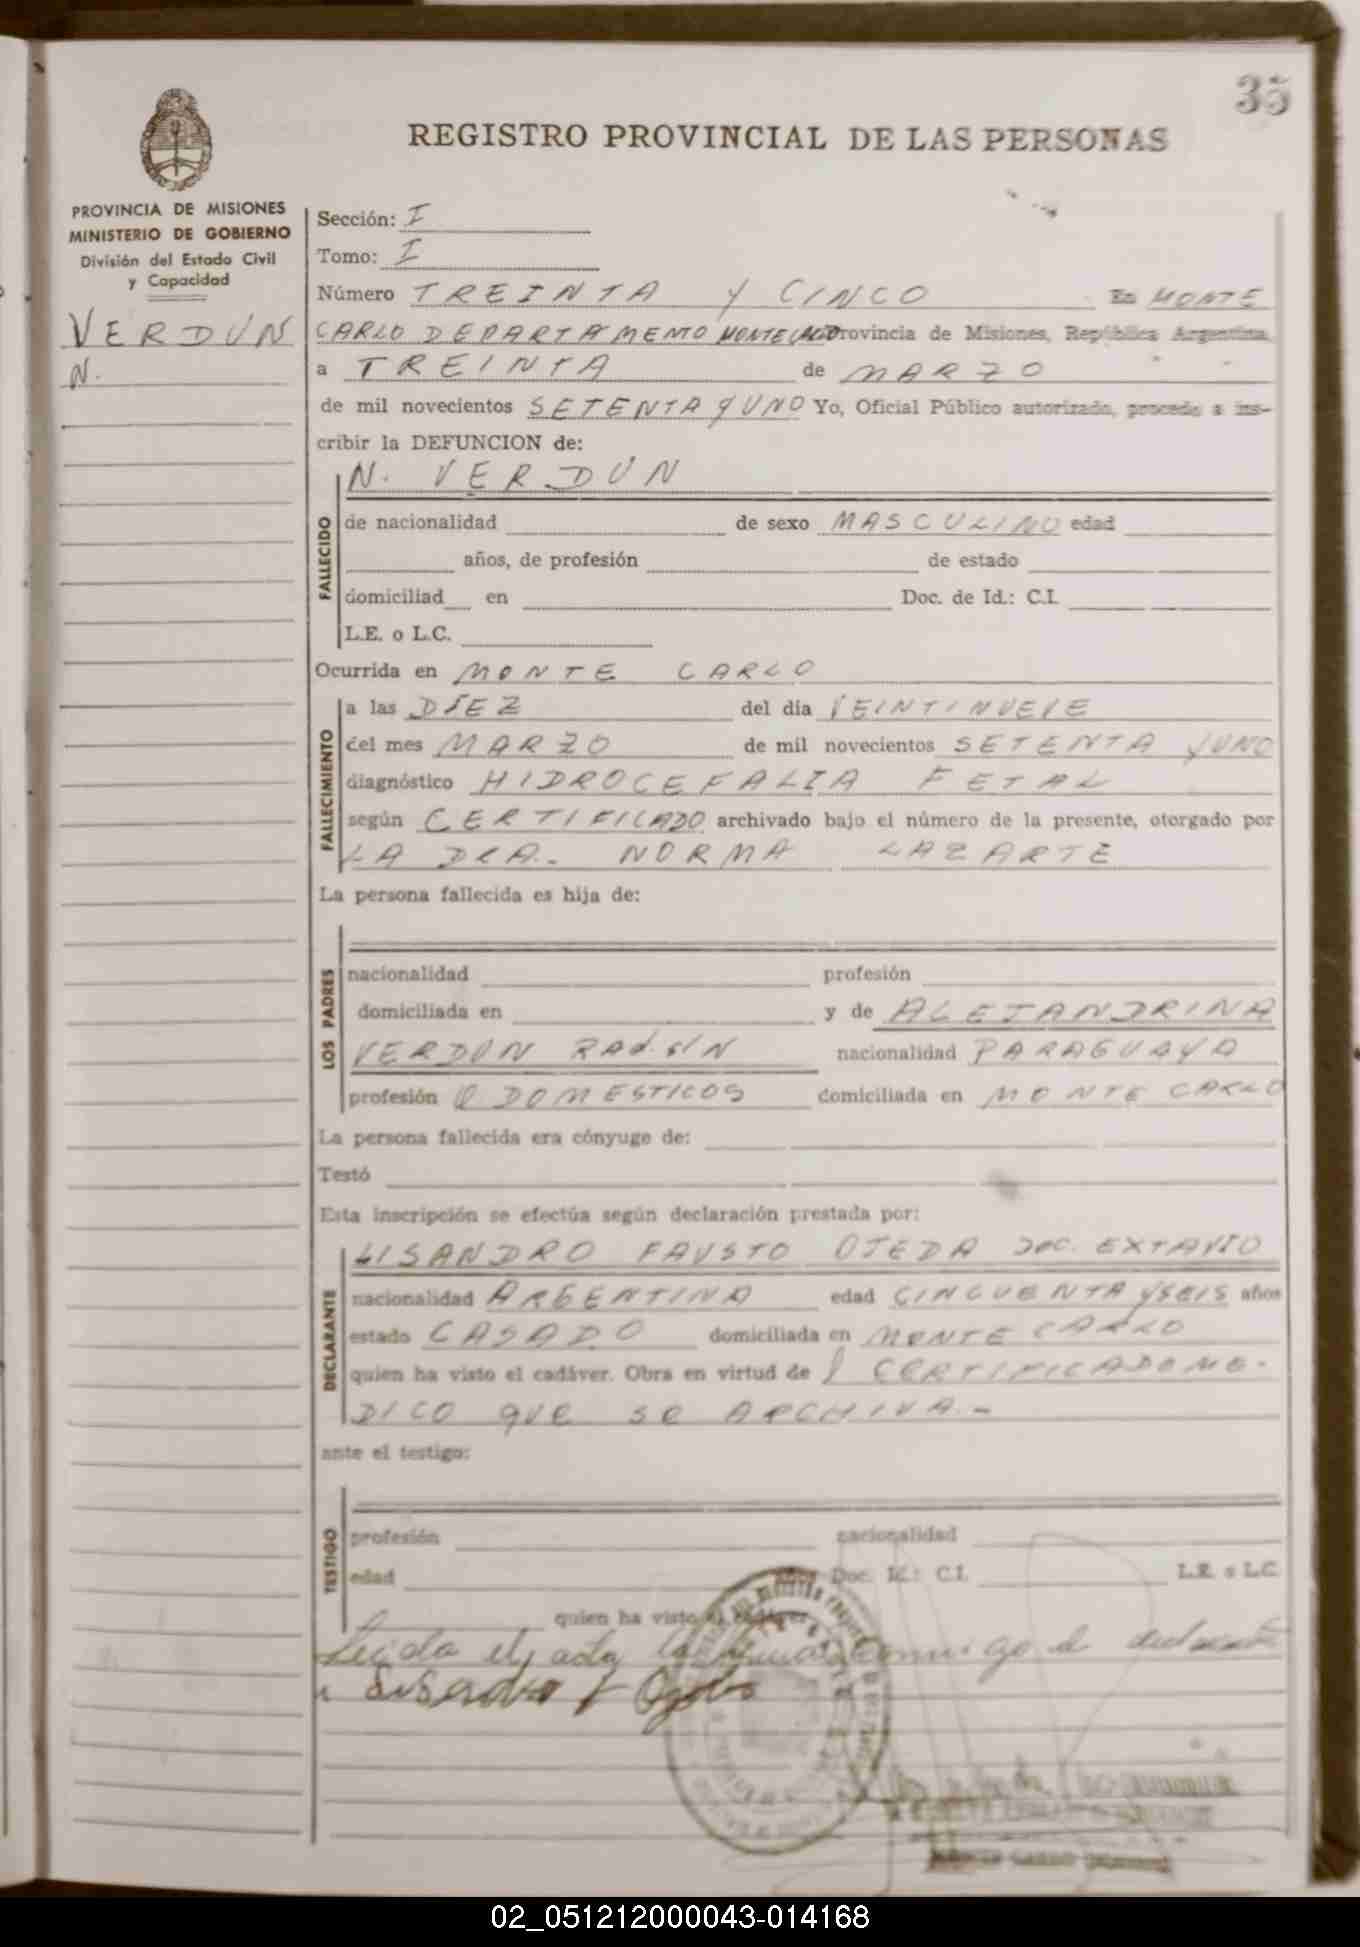 35
REGISTRO PROVINCIAL DE LAS PERSONAS
PROVINCIA DE MISIONES
MINISTERIO DE GOBIERNO
División del Estado Civil
y Capacidad
VERDUN
N.
Sección: I
Tomo: I
Número TREINTA Y CINCO En MONTE
CARLO DEPARTAMEMO MONTECARLO Provincia de Misiones, República Argentina,
a TREINTA de MARZO
de mil novecientos SETENTA y UNO Yo, Oficial Público autorizado, procedo a ins-
cribir la DEFUNCION de:
N. VERDUN
FALLECIDO
de nacionalidad de sexo MASCULINO edad
años, de profesión de estado
domiciliad en Doc. de Id.: C.I.
L.E. o L.C.
Ocurrida en MONTE CARLO
FALLECIMIENTO
a las DIEZ del día VEINTINUEVE
del mes MARZO de mil novecientos SETENTA YUNO
diagnóstico HIDROCEFALIA FETAL
según CERTIFICADO archivado bajo el número de la presente, otorgado por
LA DRA. NORMA LAZARTE
La persona fallecida es hija de:
LOS PADRES
nacionalidad profesión
domiciliada en y de ALEJANDRINA
VERDUN nacionalidad PARAGUAYA
profesión Q DOMESTICOS domiciliada en MONTE CARLO
La persona fallecida era cónyuge de:
Testó
Esta inscripción se efectúa según declaración prestada por:
DECLARANTE
LISANDRO FAUSTO OJEDA DOC. EXTAVIO
nacionalidad ARGENTINA edad CINCUENTA YSEIS años
estado CASADO domiciliada en MONTE CARLO
quien ha visto el cadáver. Obra en virtud de CERTIFICADO ME-
DICO que se ARCHIVA.-
ante el testigo:
TESTIGO
profesión nacionalidad
edad años Doc. Id.: C.I. L.E. o L.C.
quien ha visto el cadáver
Leida el acta la conmigo el declarante
MONTE CARLO
02_051212000043-014168